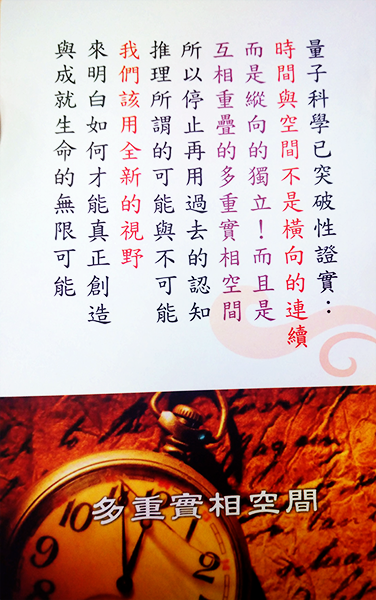 量子科學已突破性證實：
時間與空間不是橫向的連續
而是縱向的獨立！而且是
互相重疊的多重實相空間
所以停止再用過去的認知
推理所謂的可能與不可能
我們該用全新的視野
來明白如何才能真正創造
與成就生命的無限可能
多重實相空間
10
11
12
9
8